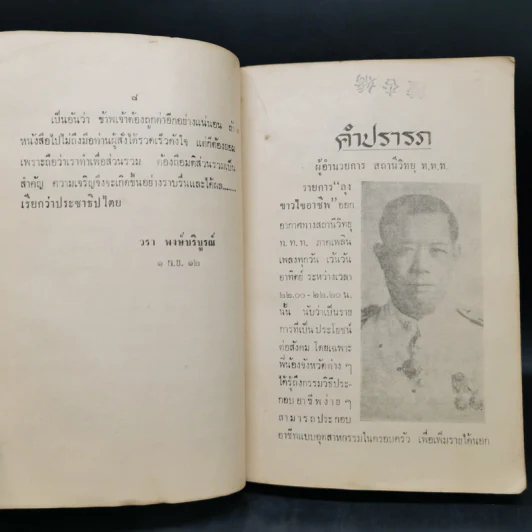 ๘
เป็นอันว่า ข้าพเจ้าต้องถูกด่าอีกอย่างแน่นอน ถ้า
หนังสือไปไม่ถึงมือท่านผู้สั่งได้รวดเร็วดังใจ แต่ก็ต้องยอม
เพราะถือว่าเราทำเพื่อส่วนรวม ต้องถือมติส่วนรวมเป็น
สำคัญ ความเจริญจึงจะเกิดขึ้นอย่างราบรื่นและได้ผล......
เรียกว่าประชาธิปไตย
วรา พงษ์บริบูรณ์
๑ ก.ย. ๑๒
คำปรารภ
ผู้อำนวยการ สถานีวิทยุ ท.ท.ท.
รายการ "ลุง
ขาวไขอาชีพ" ออก
อากาศทางสถานีวิทยุ
ท. ท. ท. ภาคเพลิน
เพลงทุกวัน เว้นวัน
อาทิตย์ ระหว่างเวลา
๒๒.๐๐ - ๒๒.๒๐ น.
นั้น นับว่าเป็นราย
การที่เป็นประโยชน์
ต่อสังคม โดยเฉพาะ
พี่น้องจังหวัดต่าง ๆ
ได้รู้ถึงกรรมวิธีประ-
กอบอาชีพง่าย ๆ
สามารถประกอบ
อาชีพแบบอุตสาหกรรมในครอบครัว เพื่อเพิ่มรายได้นอก